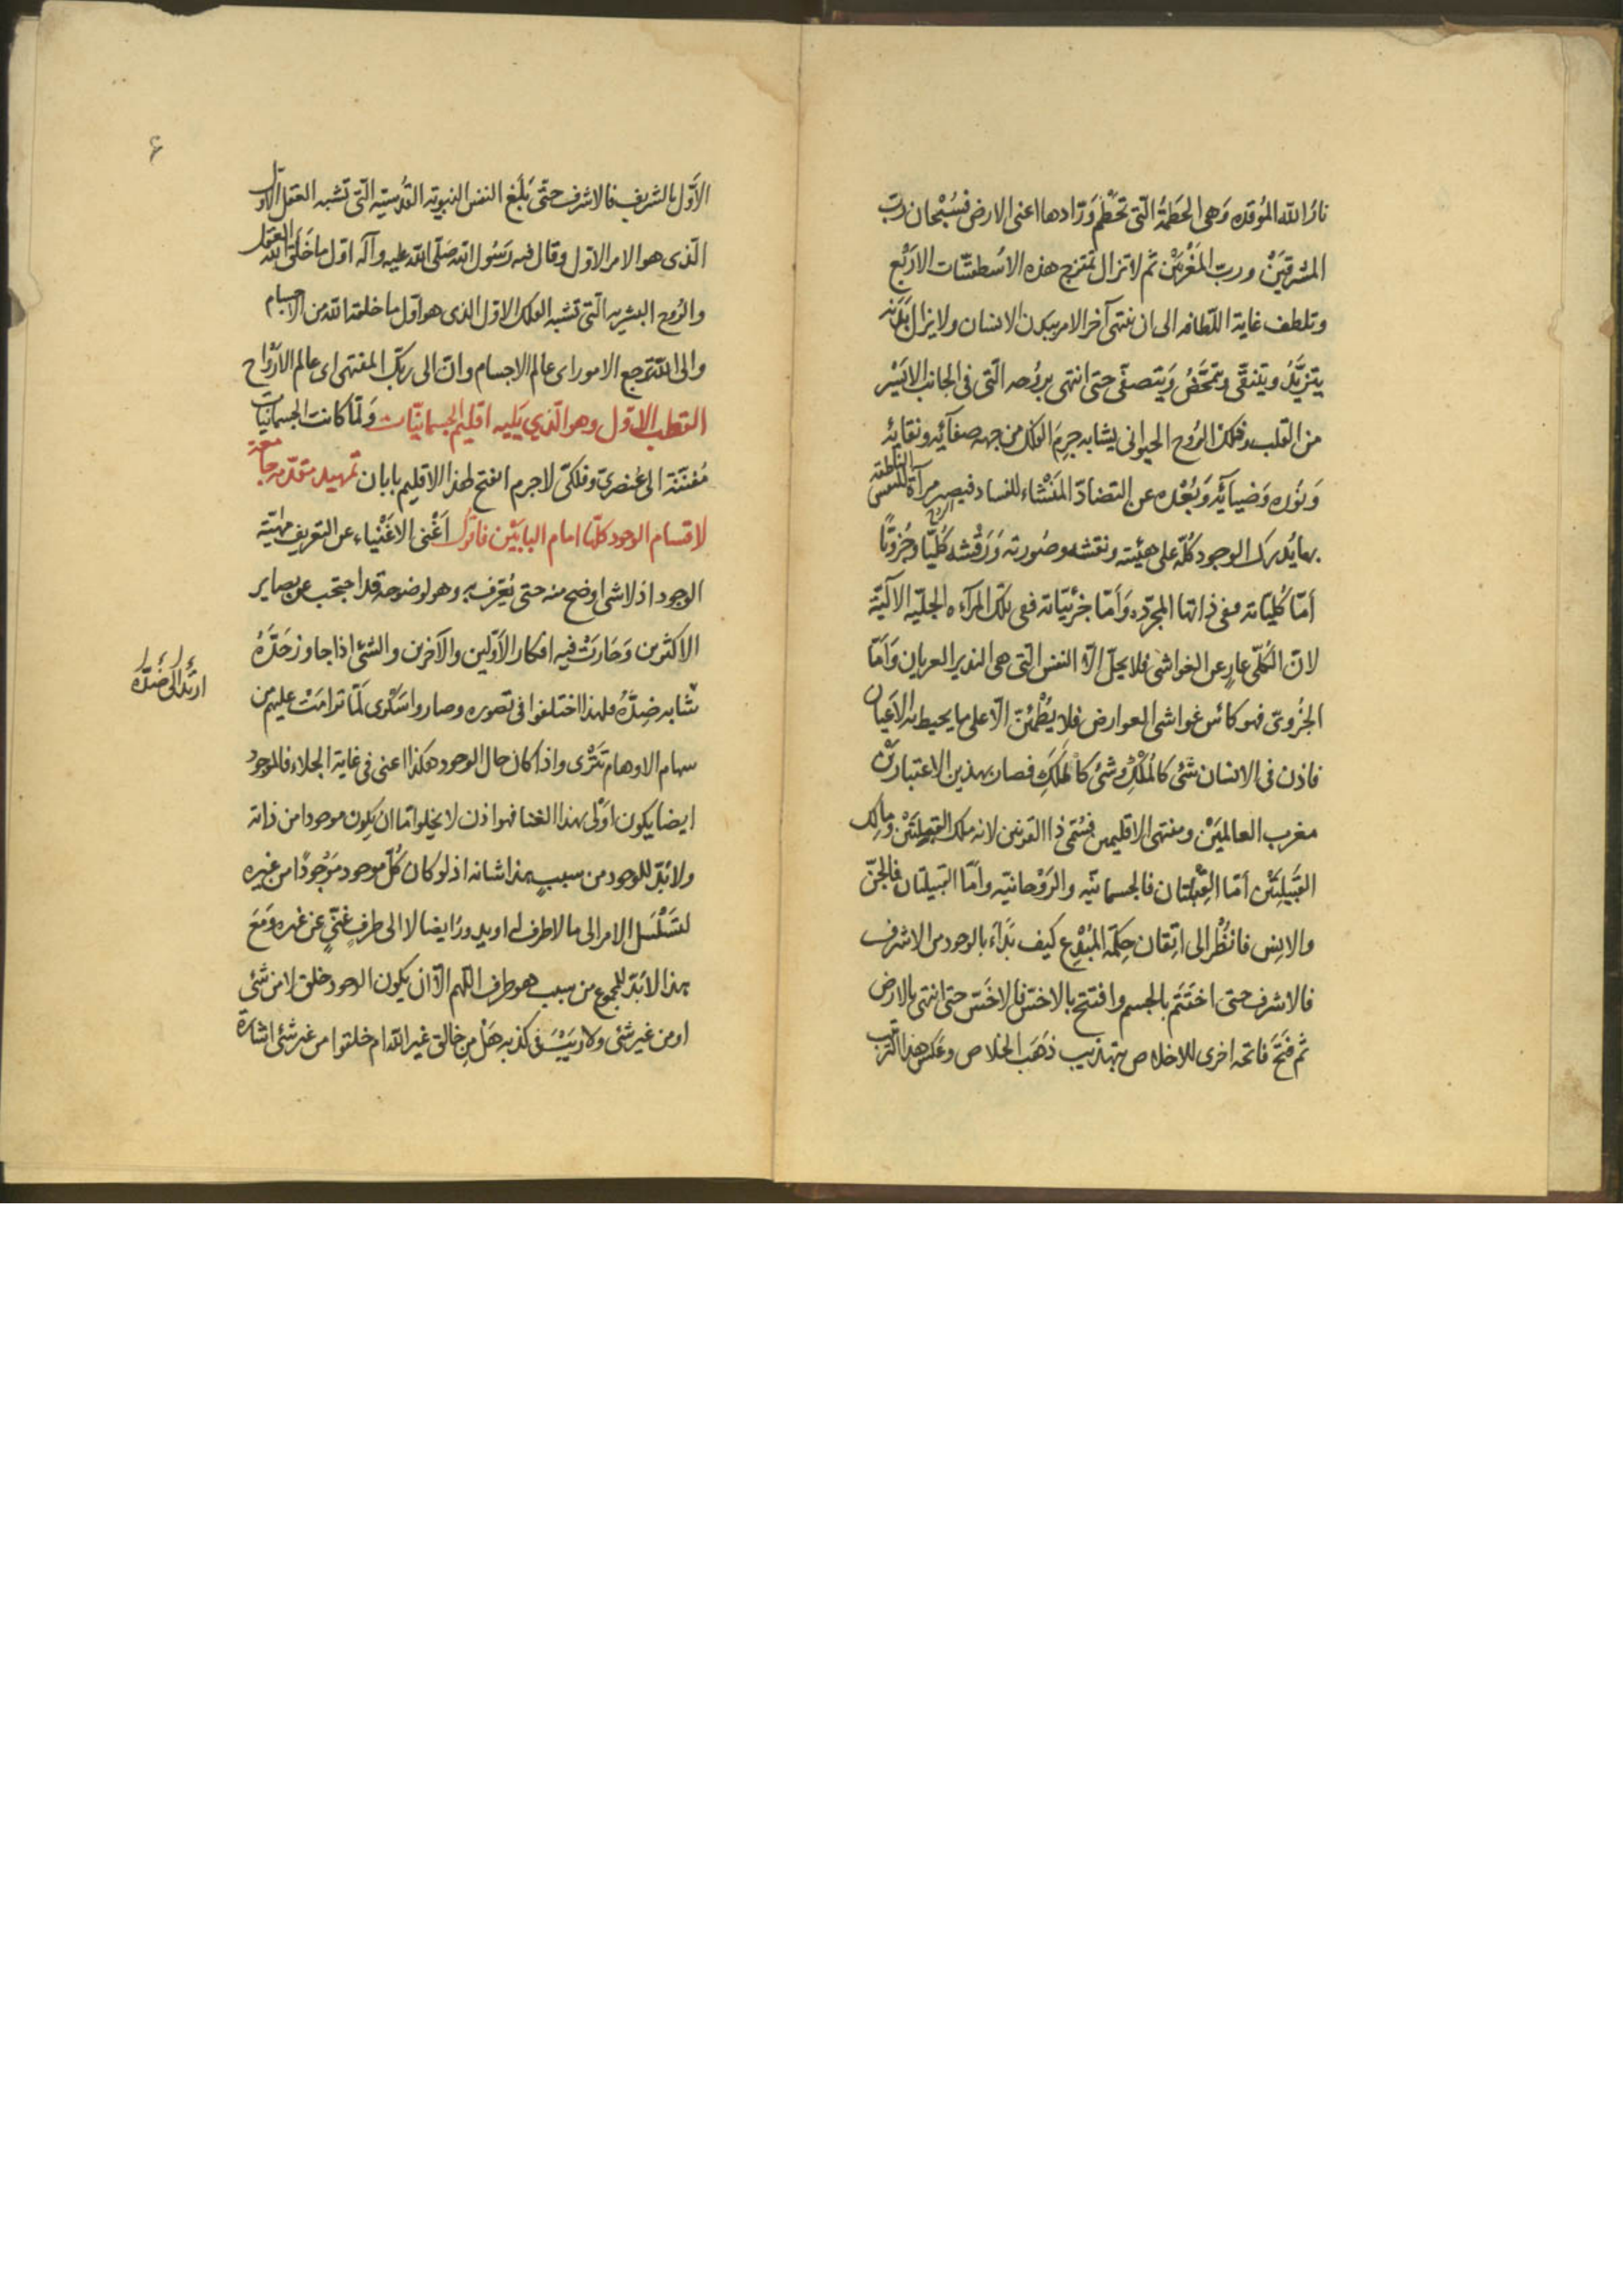 نارُ الله المُوقده وَهى الحُطَمةُ الّتى تحطّم وَرّادها اعنى الارض فسُبْحان ربّ
المشرقَيْن وربّ المَغْربَيْن ثم لا تزال تمتزج هذه الاُسطقسّات الاَرْبَع
وتلطف غاية اللّطافه الى ان ينتهى آخر الامر ببدن الانسان ولا يزال بَدَنه
يتزيَّدُ ويتنقّى ويتمخّضُ وَيَتصفّى حتى انتهى بروُحه الّتى فى الجانب الايْسَر
من القلب وفلك الرُوح الحيوانى يشابه جِرمَ الفلك من جهه صفآئِه ونقآئِه
وَنُوره وَضيائِه وَبُعْده عن التضادّ المَنْشاء للفساد فيصير مرآة للنفس الناطقه
بها يُدرك الوجود كُلّه على هيئته ونقشه وصُورته وَرَقْشه كُليّا وجُزويّا
اَمّا كُليّاته ففى ذاتها المجرّده وَاَمّا جزئيّاته ففى تلك المرآه الجليّه الآليّة
لانّ الكُلّى عارٍ عن الغواشى فلا يحلّ الاّ النفس الّتى هى النذير العريان وَاَمّا
الجُزوىّ فهو كأس غواشى العوارض فلا يَطْمئنّ الاّ على ما يحيط به الاَعيان
فاذن فى الانسان شئ كالمُلْكِ وشئ كالمَلَكِ فصار بهذين الاعتبارَيْن
مغرب العالمَيْن ومنتهى الاقليمين فسُمّى ذا القرنين لانه ملك القبِيلتَيْن ومالك
القَبِيلَتَيْن اَمّا القِبْلتان فالجسمانيّه والرَوْحانيّه واَمّا القبيلتان فالجنّ
والانِس فانظُر الى اتِقان حِكمَة المُبْدِع كيف بَدَاءَ بالوجود من الاشرف
فالاشرف حتى اختَتَم بالجسم وافتتح بالاخسّ فالاخَسّ حتى انتهى بالارض
ثم فتَحَ فاتحه اخرى للاخلاص بتهذيب ذَهَب الخلاص وعَكَس هذا الترتيب
الاَوّل بالشريف فالاشرف حتّى بَلَغ النفس النبويّه القُدسيّه الّتى تشبه العقل الاوّل
الّذى هو الامر الاوّل وقال فيه رَسُول الله صَلّى الله عليه وآله اوّل ما خَلَق الله العقل
والرُوح البشريه الّتى تشبه الفلك الاوّل الذى هو اوّل ما خلقه الله من الاجسام
والى الله تُرجع الامور اى عالم الاجسام وانّ الى ربّك المنتهى اى عالم الاَرْواح
القطب الاوّل وهو الّذي يَليه اقليم الجسمانيّات وَلمّا كانت الجسمانيّات
مُفتنّة الى عُنصرىّ وفلكىّ لا جرم انفتح لهذا الاقليم بابان تمهيد مقدّمه جامعة
لاقسام الوجود كلّها امام البابَيْن فاقول اَغْنى الاغْنياء عن التعريف مَهيّة
الوجود اذ لا شئ اوضح منه حتى يُعَرّف به وهو لوضوحه قد احتجب عن بصاير
الاكثرين وَحَارَتْ فيه افكار الاَوّلين والآخرين والشئ اذا جاوز حَدّهُ
شابه ضِدّهُ فلهذا اختلفوا فى تصوره وصاروا سَكْرى لَمّا ترامَتْ عليهم من
سهام الاوهام تَتْرى واذا كان حال الوجود هكذا اعنى فى غاية الجلاء فالموجود
ايضا يكون اَوْلى بهذا الغنا فهو اذن لا يخلوا امّا ان يكون موجودا من ذاته
ولا بُدّ للوجود من سببٍ هذا شانه اذ لو كان كُلّ موجود مَوْجُودًا من غيره
لتسَلْسَل الامر الى ما لا طرف له او يدور ايضا لا الى طرفٍ غنىٍّ عن غيره وَمَعَ
هذا لا بُدّ للمجموع من سبب هو طرف اللّهم الاّ ان يكون الوجود خلق لا من شئ
او من غير شئ ولا ريب فى كذبه هَلْ من خالق غير الله ام خلقوا من غير شئ اشارة
ارتدّ الى ضدّه
۶